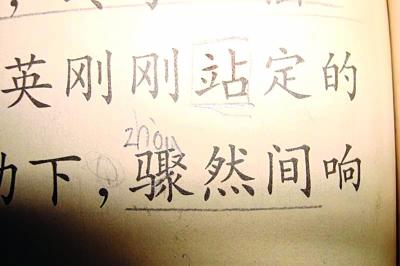 英刚刚站定的
zhòu
下，骤然间响